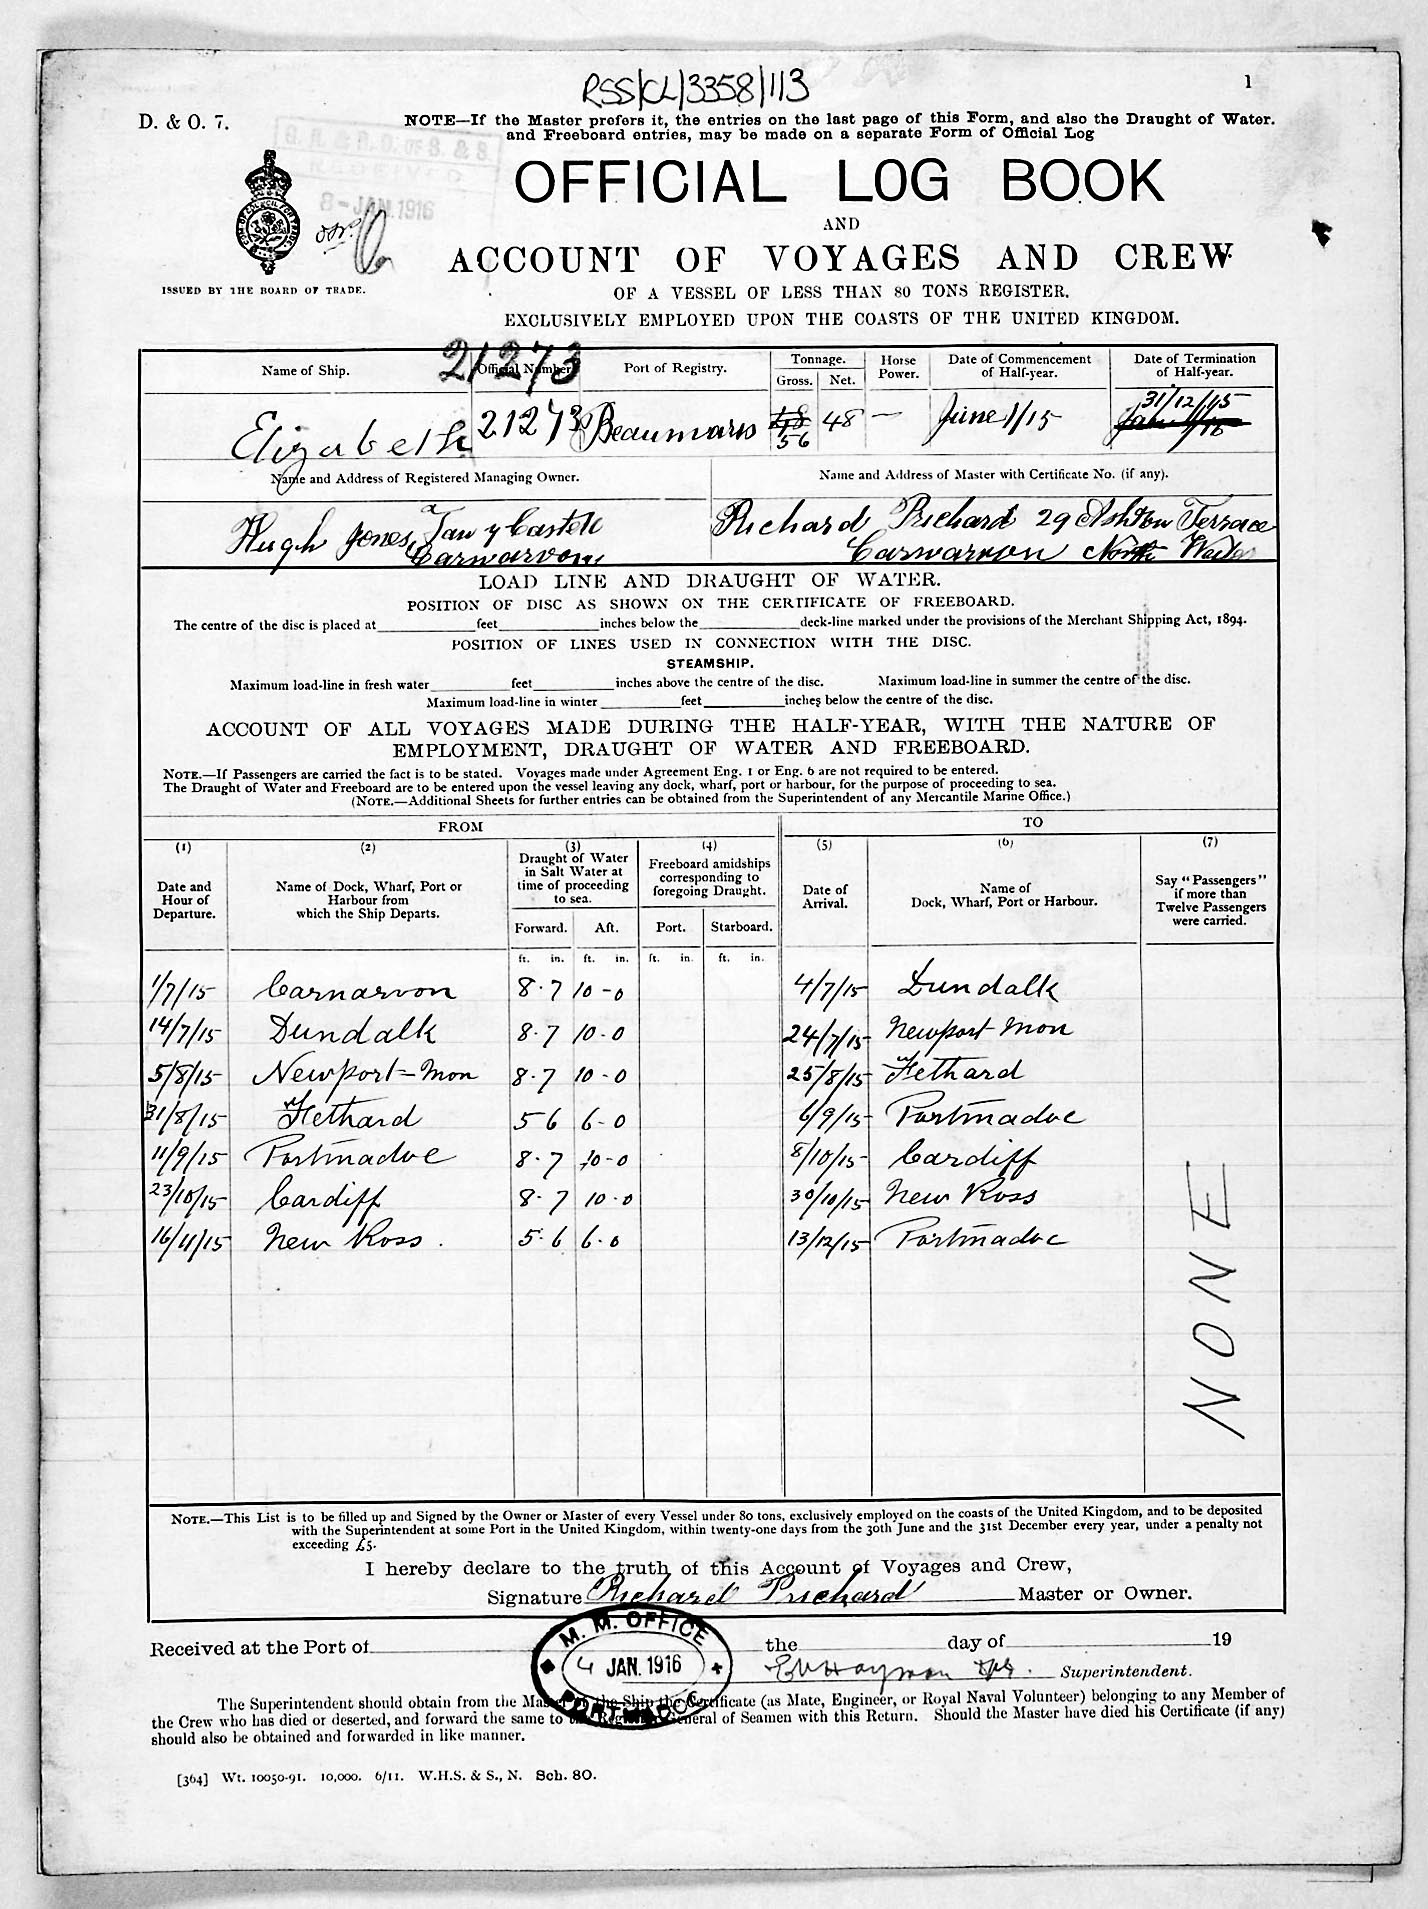 RSS/CL/3358/113
1
D. & O. 7.
NOTE—If the Master prefers it, the entries on the last page of this Form, and also the Draught of Water.
and Freeboard entries, may be made on a separate Form of Official Log
8-JAN.1916
OFFICIAL LOG BOOK
AND
ACCOUNT OF VOYAGES AND CREW
ISSUED BY THE BOARD OF TRADE.
OF A VESSEL OF LESS THAN 80 TONS REGISTER,
EXCLUSIVELY EMPLOYED UPON THE COASTS OF THE UNITED KINGDOM.
21273
Name of Ship. Official Number. Port of Registry. Tonnage. Horse Power. Date of Commencement of Half-year. Date of Termination of Half-year.
Gross. Net.
Elizabeth 21273 Beaumaris 48 56 48 — June 1/15 31/12/15
Name and Address of Registered Managing Owner. Name and Address of Master with Certificate No. (if any).
Hugh Jones, Tan y Castell Richard Prichard 29 Ashton Terrace
Carnarvon Carnarvon North Wales
LOAD LINE AND DRAUGHT OF WATER.
POSITION OF DISC AS SHOWN ON THE CERTIFICATE OF FREEBOARD.
The centre of the disc is placed at feet inches below the deck-line marked under the provisions of the Merchant Shipping Act, 1894.
POSITION OF LINES USED IN CONNECTION WITH THE DISC.
STEAMSHIP.
Maximum load-line in fresh water feet inches above the centre of the disc. Maximum load-line in summer the centre of the disc.
Maximum load-line in winter feet inches below the centre of the disc.
ACCOUNT OF ALL VOYAGES MADE DURING THE HALF-YEAR, WITH THE NATURE OF
EMPLOYMENT, DRAUGHT OF WATER AND FREEBOARD.
NOTE.—If Passengers are carried the fact is to be stated. Voyages made under Agreement Eng. 1 or Eng. 6 are not required to be entered.
The Draught of Water and Freeboard are to be entered upon the vessel leaving any dock, wharf, port or harbour, for the purpose of proceeding to sea.
(NOTE.—Additional Sheets for further entries can be obtained from the Superintendent of any Mercantile Marine Office.)
FROM TO
(1) (2) (3) (4) (5) (6) (7)
Date and Hour of Departure. Name of Dock, Wharf, Port or Harbour from which the Ship Departs. Draught of Water in Salt Water at time of proceeding to sea. Freeboard amidships corresponding to foregoing Draught. Date of Arrival. Name of Dock, Wharf, Port or Harbour. Say "Passengers" if more than Twelve Passengers were carried.
Forward. Aft. Port. Starboard.
ft. in. ft. in. ft. in. ft. in.
1/7/15 Carnarvon 8.7 10-0 4/7/15 Dundalk
14/7/15 Dundalk 8.7 10.0 24/7/15 Newport Mon
5/8/15 Newport-Mon 8.7 10-0 25/8/15 Fethard
31/8/15 Fethard 5 6 6-0 6/9/15 Portmadoc
11/9/15 Portmadoc 8.7 10-0 8/10/15 Cardiff
23/10/15 Cardiff 8.7 10.0 30/10/15 New Ross
16/11/15 New Ross. 5.6 6.0 13/12/15 Portmadoc
NONE
NOTE.—This List is to be filled up and Signed by the Owner or Master of every Vessel under 80 tons, exclusively employed on the coasts of the United Kingdom, and to be deposited
with the Superintendent at some Port in the United Kingdom, within twenty-one days from the 30th June and the 31st December every year, under a penalty not
exceeding £5.
I hereby declare to the truth of this Account of Voyages and Crew,
Signature Richard Prichard Master or Owner.
M. M. OFFICE
4 JAN. 1916
PORTMADOC
Received at the Port of the day of 19
Superintendent.
The Superintendent should obtain from the Master of the Ship the Certificate (as Mate, Engineer, or Royal Naval Volunteer) belonging to any Member of
the Crew who has died or deserted, and forward the same to the Registrar General of Seamen with this Return. Should the Master have died his Certificate (if any)
should also be obtained and forwarded in like manner.
[364] Wt. 10050-91. 10,000. 6/11. W.H.S. & S., N. Sch. 80.